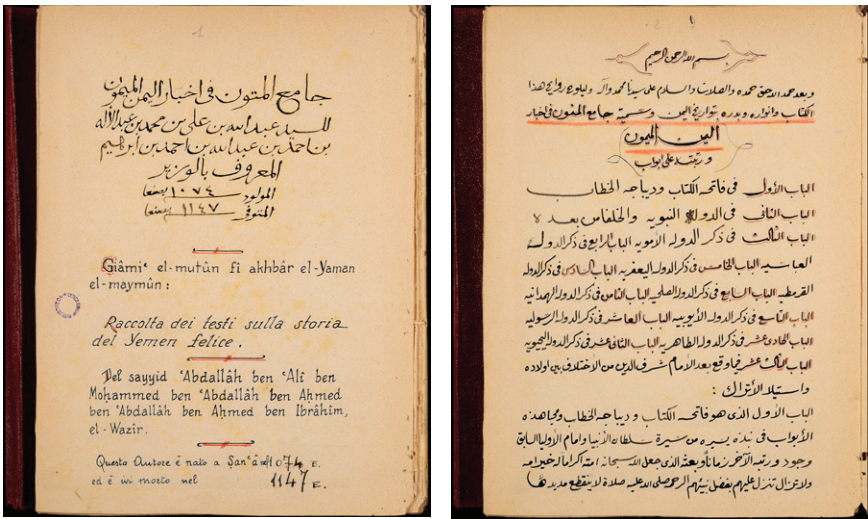 1
جامع المتون في اخبار اليمن الميمون
للسيد عبد الله بن علي بن محمد بن عبد الاله
بن احمد بن عبد الله بن احمد بن ابرهيم
المعروف بالوزير
المولود ١٠٧٤ بصنعا
المتوفى ١١٤٧ بصنعا
Giâmiʿ el-mutûn fi akhbâr el-Yaman
el-maymûn:
Raccolta dei testi sulla storia
del Yemen felice.
Del sayyid ʿAbdallâh ben ʿAli ben
Moḥammed ben ʿAbdallâh ben Aḥmed
ben ʿAbdallâh ben Aḥmed ben Ibrâhîm,
el-Wazîr.
Questo Autore è nato a Ṣanʿâ nel 1074 E.
ed è ivi morto nel 1147 E.
١
بسم الله الرحمن الرحيم
وبعد حمد الله حق حمده والصلاة والسلام على سيدنا محمد وآله هذا
الكتاب وانواره وبدره بتواريخ اليمن وسميته جامع المتون في اخبار
اليمن الميمون
ورتبته على ابواب
الباب الأول في فاتحة الكتاب وديباجه الخطاب
الباب الثاني في الدوله النبويه والخلفا من بعد
الباب الثالث في ذكر الدوله الأمويه الباب الرابع في ذكر الدوله
العباسيه الباب الخامس في ذكر الدوله اليعفريه الباب السادس في ذكر الدوله
القرمطيه الباب السابع في ذكر الدوله الصلحيه الباب الثامن في ذكر الدوله الهمدانيه
الباب التاسع في ذكر الدوله الأيوبيه الباب العاشر في ذكر الدوله الرسوليه
الباب الحادي عشر في ذكر الدوله الطاهريه الباب الثاني عشر في ذكر الدوله
الباب الثالث عشر فيما وقع بعد الأمام شرف الدين من الأختلاف بين اولاده
واستيلا الأتراك :
الباب الأول الذي هو فاتحه الكتاب وديباجه الخطاب ومجاهده
الأبواب في نبذه يسيره من سيرة سلطان الأنبيا وامام الأوليا السابق
وجود ورتبه الآخر زمانا وبعثه الذي جعل الله سبحانه امته اكراما له خير امه
ولا تزال تنزل عليهم بفضل نبيهم الرحمه صلى الله عليه صلاة لا ينقطع مديدها